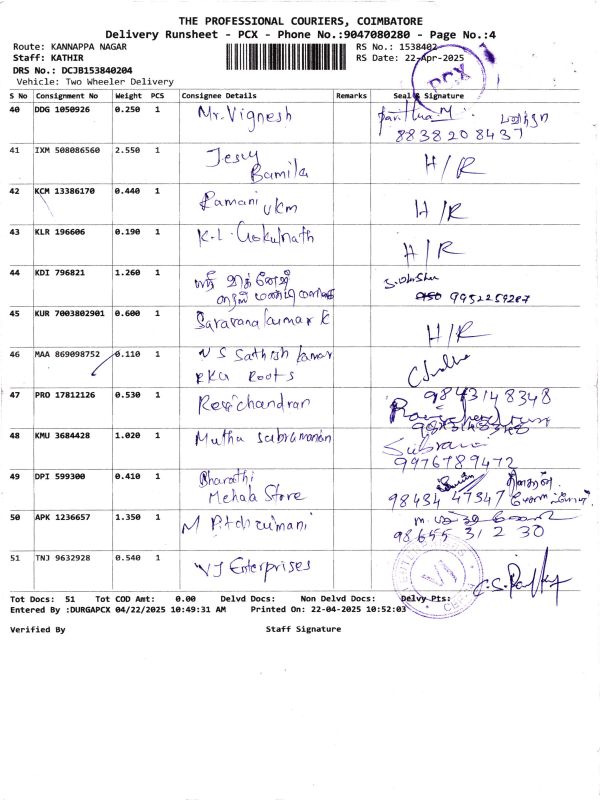 THE PROFESSIONAL COURIERS, COIMBATORE
Delivery Runsheet - PCX - Phone No.:9047080280 - Page No.:4
Route: KANNAPPA NAGAR RS No.: 1538402
Staff: KATHIR RS Date: 22-Apr-2025
DRS No.: DCJB153840204
Vehicle: Two Wheeler Delivery
PCX
S No Consignment No Weight PCS Consignee Details Remarks Seal & Signature
40 DDG 1050926 0.250 1 Mr. Vignesh
8838208437
41 IXM 508086560 2.550 1 Jesuy Bamila H/R
42 KCM 13386170 0.440 1 Ramani ukm H/R
43 KLR 196606 0.190 1 K.L. Gokulnath H/R
44 KDI 796821 1.260 1 ஸ்ரீ
9952259287
45 KUR 7003802901 0.600 1 Saravana kumar K H/R
46 MAA 869098752 0.110 1 N S Sathish kumar
RKG Roots
47 PRO 17812126 0.530 1 Ravichandran 9843148348
48 KMU 3684428 1.020 1 Mutha subramanian
9976789472
49 DPI 599300 0.410 1 Bharathi
Mehala Store 98434 47347
50 APK 1236657 1.350 1 M
98655 31230
51 TNJ 9632928 0.540 1 VJ Enterprises
VJ
Tot Docs: 51 Tot COD Amt: 0.00 Delvd Docs: Non Delvd Docs: Delvy Pts:
Entered By :DURGAPCX 04/22/2025 10:49:31 AM Printed On: 22-04-2025 10:52:03
Verified By Staff Signature